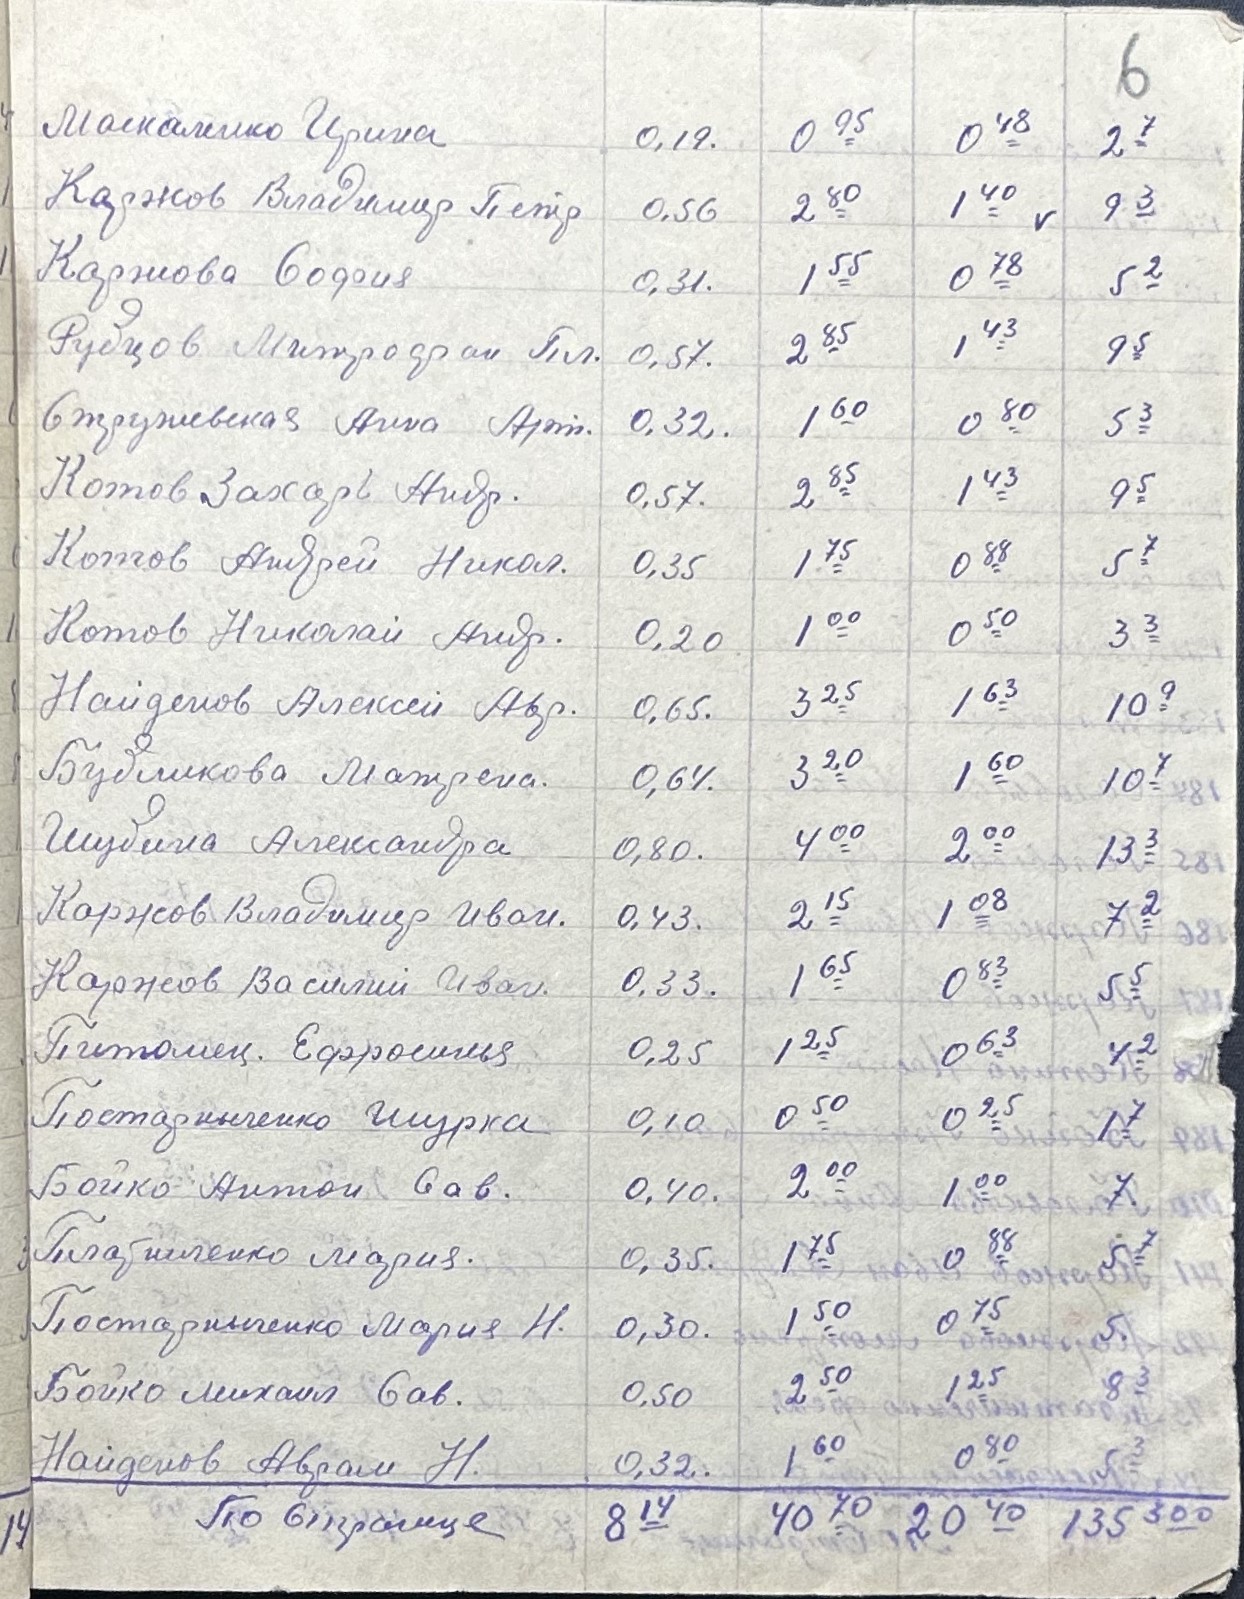 6
Москаленко Ирина 0,19. 0 95 0 48 2 7
Каржов Владимир Петр 0,56 2 80 1 40 v 9 3
Каржова София 0,31. 1 55 0 78 5 2
Рубцов Митрофан Пл. 0,57. 2 85 1 43 9 5
Стружевская Анна Арт. 0,32. 1 60 0 80 5 3
Котов Захарь Андр. 0,57. 2 85 1 43 9 5
Котов Андрей Никол. 0,35 1 75 0 88 5 7
Котов Николай Андр. 0,20 1 00 0 50 3 3
Найденов Алексей Авр. 0,65. 3 25 1 63 10 9
Бубликова Матрена. 0,64. 3 20 1 60 10 7
Шубина Александра 0,80. 4 00 2 00 13 3
Каржов Владимир Иван. 0,43. 2 15 1 08 7 2
Каржов Василий Иван. 0,33. 1 65 0 83 5 5
Питомец. Ефросинья 0,25 1 25 0 63 4 2
Постарниченко Шурка 0,10 0 50 0 25 1 7
Бойко Антон Сав. 0,40. 2 00 1 00 7.
Мария. 0,35. 1 75 0 88 5 7
Постарниченко Мария Н. 0,30. 1 50 0 75 5.
Бойко Михаил Сав. 0,50 2 50 1 25 8 3
Найденов Аврам Н. 0,32. 1 60 0 80 5 3
По Странице 8 14 40 70 20 40 135 300